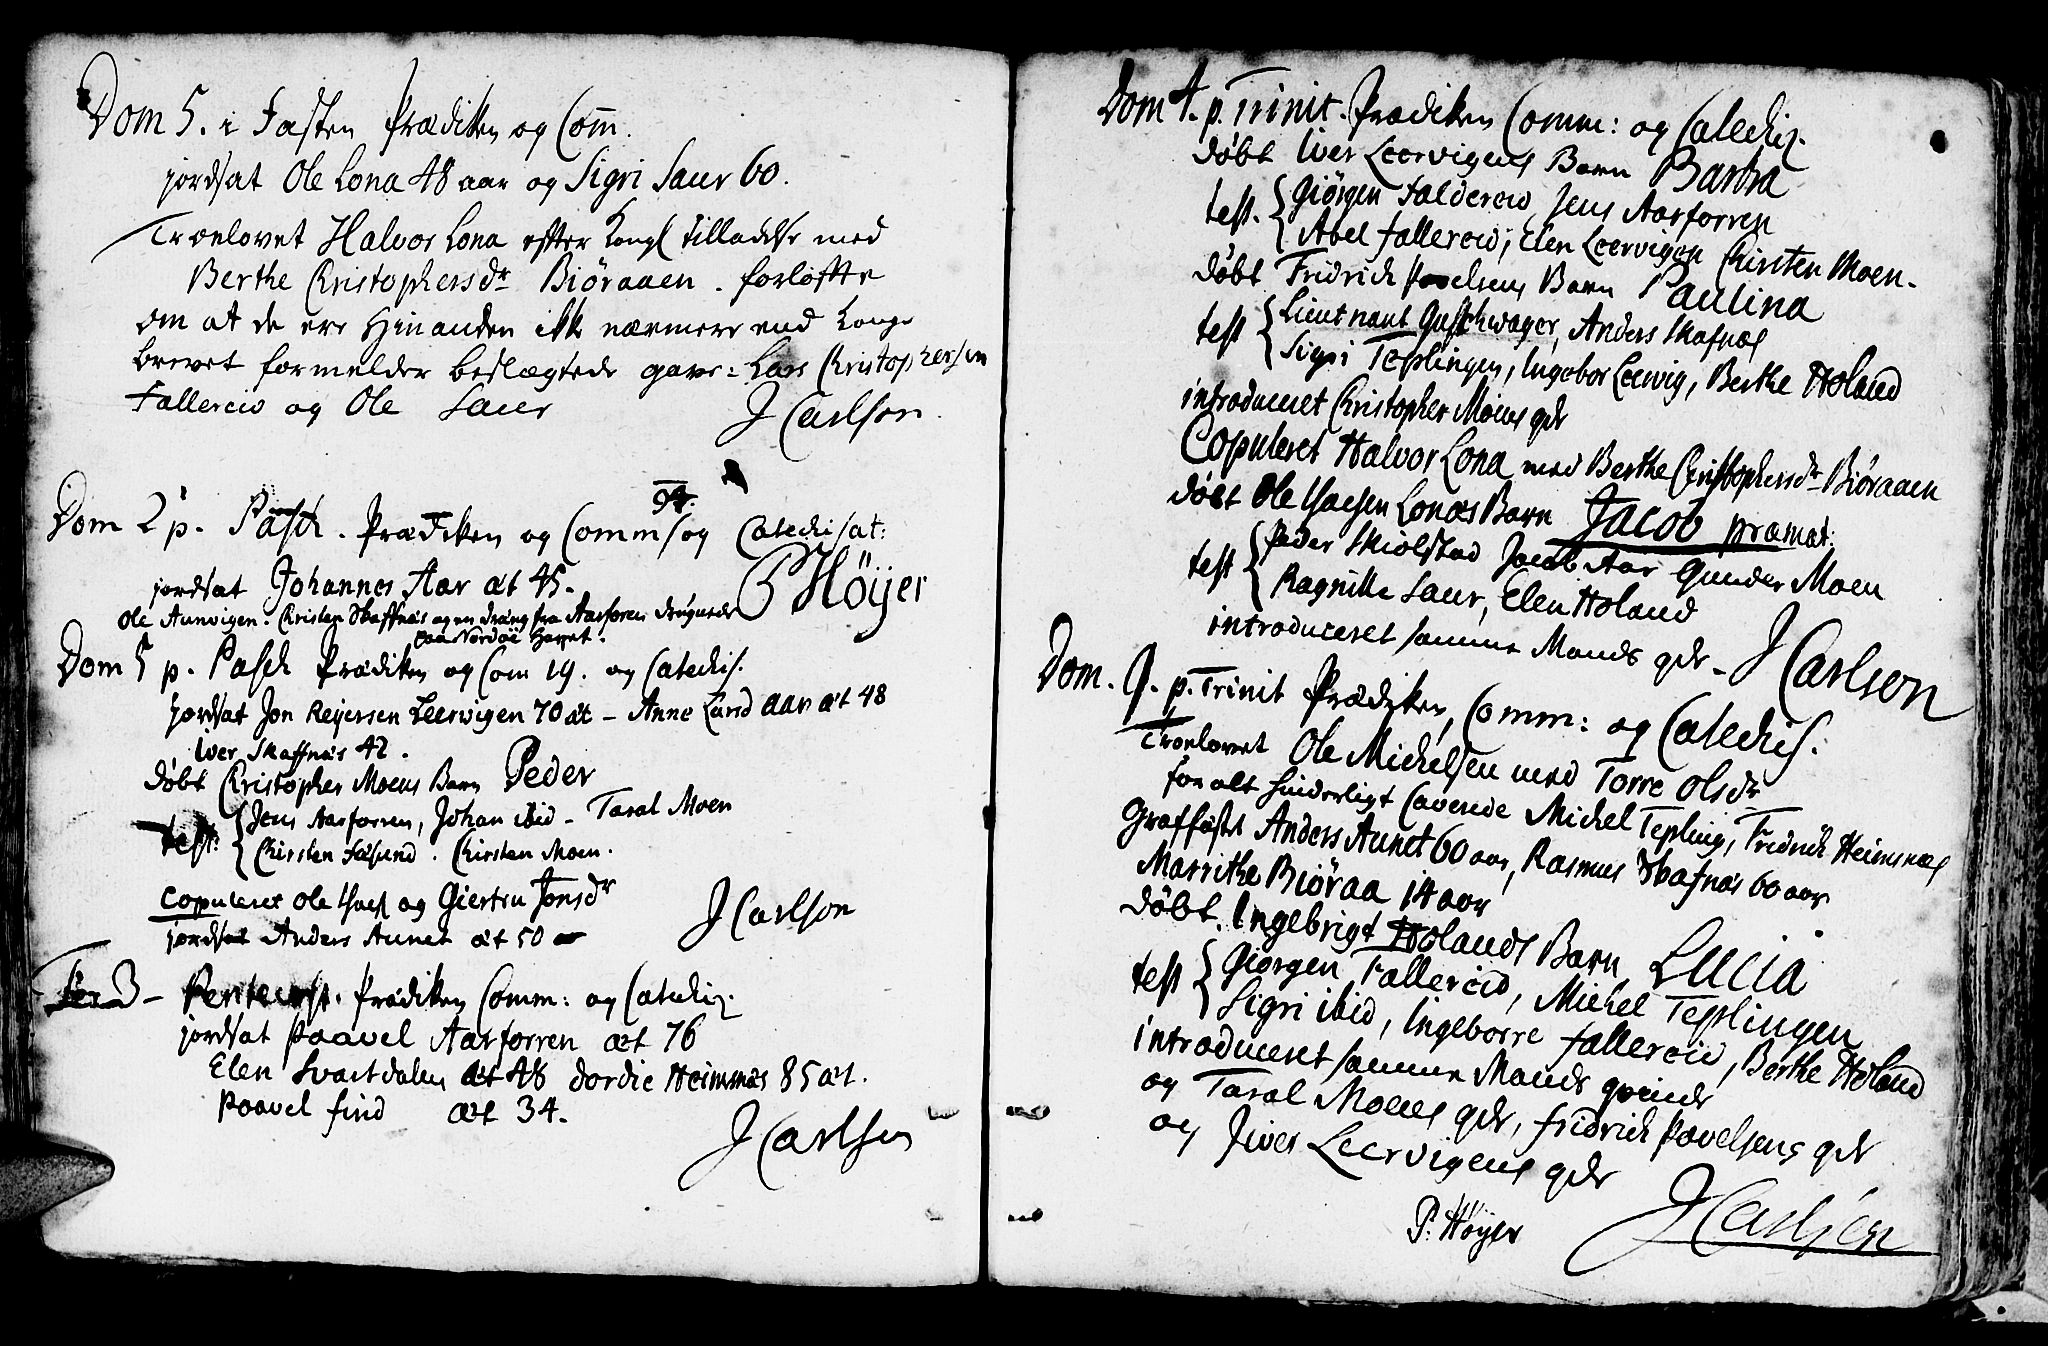 Dom 5. i Fasten Prædiken og Com̄.
jordsat Ole Lona 48 aar og Sigri Saur 60.
Troelovet Halvor Lona efter Kongl tilladelse med
Berthe Christophersdr Biøraaen. forløfte
om at de ere Hinanden ikk nærmere end Konge
brevet formelder beslægtede gave: Lars Christophersen
Fallereid og Ole Saur
J Carlson.
Dom 2 p. Pasch. Prædiken og Comm og Catechisat:
jordsat Johannes Aar æt 45.
P Høÿer
Ole Aunvigen. Christen Skaffnæs og en dräng fra Aarforen drögnede
paa Nordöe Havet.
Dom 5 p. Pasch Prædiken og Com 19. og Catechis.
jordsat Jon Reÿersen Leervigen 70 æt - Anne Lund aar æt 48
Iver Skaffnæs 42.
døbt Christopher Moens Barn Peder
test: Jens Aarforren, Johan ibid - Taral Moen
Chirsten Føsund. Chirsten Moen.
Copuleret Ole Isach og Giertru Jonsdr
J Carlson
jordsat Anders Aunet æt 50
Fer 3 - Pentecost. Prædiken Comm: og Catechiz.
jordsat Paavel Aarforren æt 76
Elen Svartdalen æt 48 dordie Heimnæs 85 æt.
Paavel find æt 34.
J Carlsen
Dom 4. p. Trinit. Prædiken Comm: og Catechiz.
døbt Iver Leervigens Barn Barbra
test. Giörgen Faldereid, Jens Aarforren
Abel Fallereid, Elen Leervigen Chirsten Moen.
døbt Fridrich Povelsens Barn Paulina
test Lieutnant Gustchwager, Anders Skafnæs
Sigri Teplingen, Ingebor Leervig, Berthe Holand
introduceret Christopher Moens qdr
Copuleret Halvor Lona med Berthe Christophersdr Biøraaen
døbt Ole Isacsen Lonæs Barn Jacob præmat:
test Peder Skiolstad Jacob Aar Gunder Moen
Ragnille Saur, Elen Holand
introduceret samme Mands qdr -
J Carlson
Dom. 9. p. Trinit Prædiken, Comm: og Catechis.
Troelovet Ole Michelsen med Torre Olsdr
for alt hinderligt Caverede Michel Tepling, Fridrich Heimnæs
Graffæstet Anders Aunet 60 aar, Rasmus Skafnæs 60 aar
Marrithe Biøraa 14 aar
døbt. Ingebrigt Holands Barn Lucia
test Giörgen Fallereid, Michel Teplingen
Sigri ibid, Ingeborre Fallereid, Berthe Holand
introduceret samme Mands qvinde
og Taral Moens qdr, Fridrich Povelsens qdr
og Jiver Leervigens qdr
P: Høÿer J Carlsen